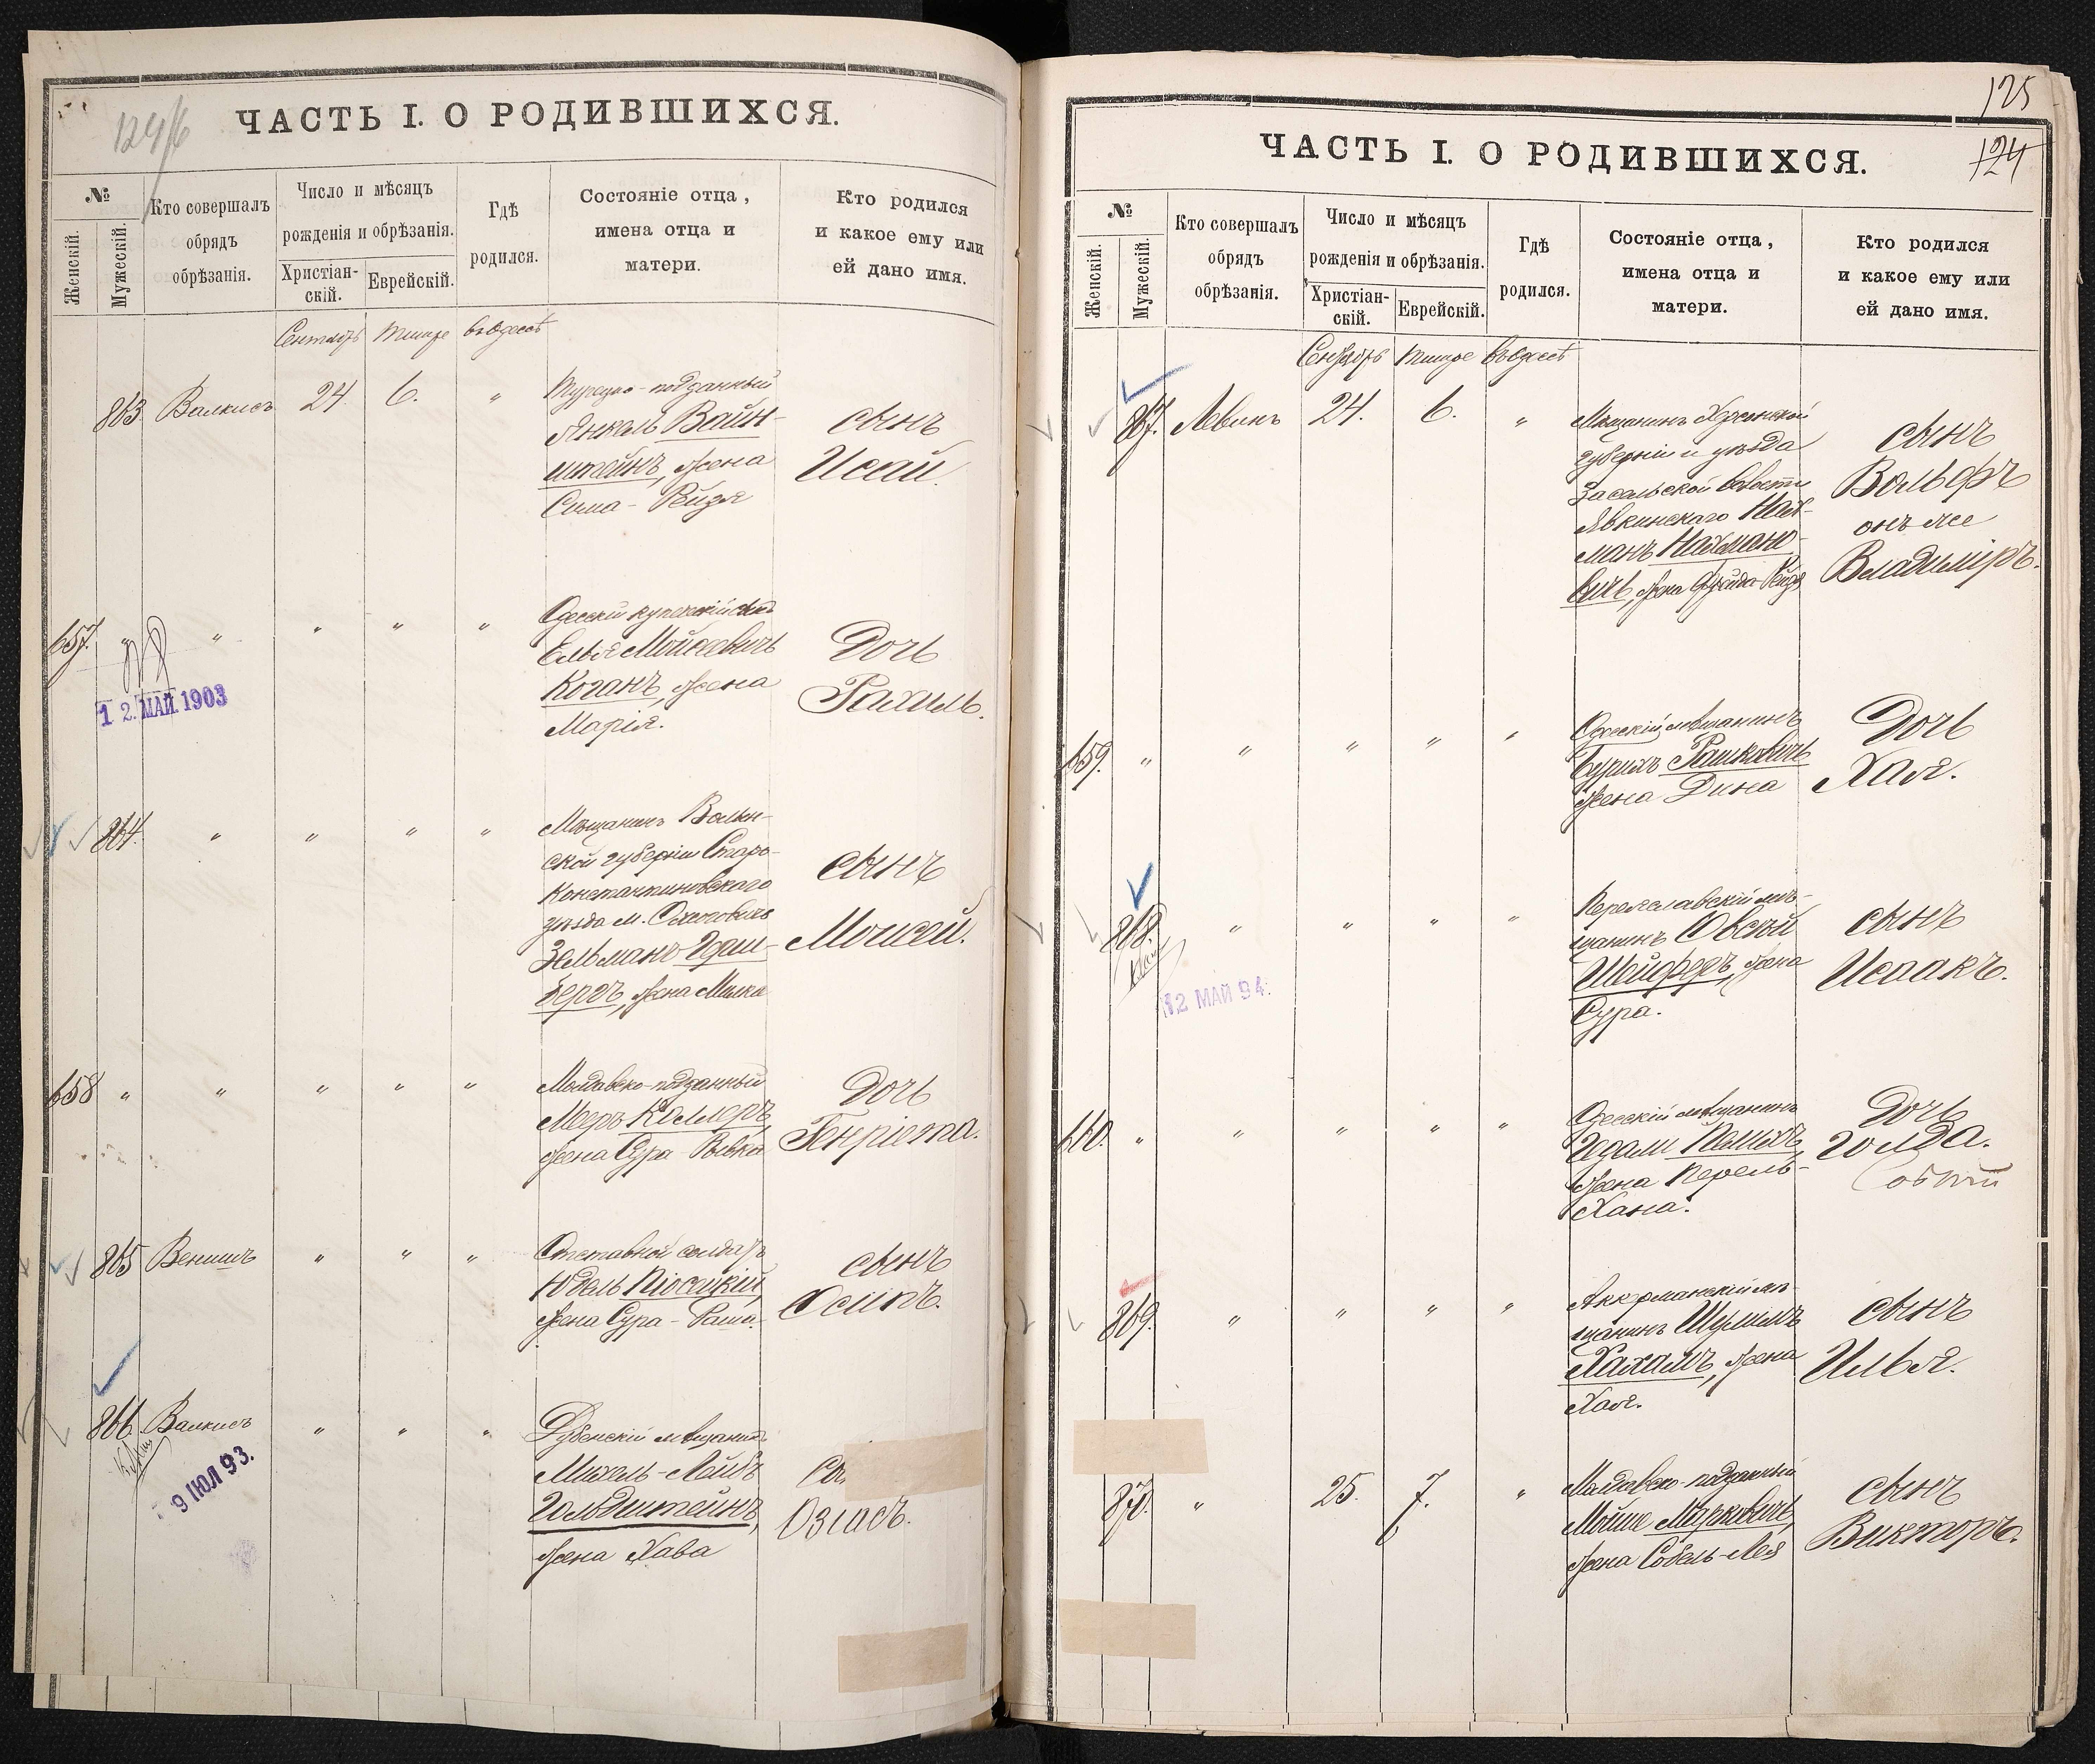 124/б
ЧАСТЬ I. О РОДИВШИХСЯ.
№
Женскій.
Мужескій.
Кто совершалъ
обрядъ
обрѣзанія.
Число и мѣсяцъ
рожденія и обрѣзанія.
Христіан-
скій.
Еврейскій.
Гдѣ
родился.
Состояніе отца,
имена отца и
матери.
Кто родился
и какое ему или
ей дано имя.
Сентябрь Тишре въ Одессѣ
863. Валкисъ 24. 6. "
Турецко-подданный
Янкель Вайн-
штейнъ, жена
Сима-Рейзя
сынъ
Исай.
657. " " " " "
Одесскій купеческій сынъ
Елья Мойсеевичъ
Коганъ, жена
Марія.
Дочь
Рахиль.
12. МАЙ 1903
864. " " " "
Мѣщанинъ Волын-
ской губерніи Старо-
константиновскаго
уѣзда м.
Зельманъ
бергъ, жена Милка
сынъ
Моисей.
658 " " " " "
Молдавско-подданный
Меръ Коллеръ,
жена Сура-Ривка
Дочь
Генріета.
865 " " "
Отставной солдатъ
Юдель
жена Сура-
сынъ
Осипъ.
866. Валкисъ " " "
Дубенскій мѣщанинъ
Михель-Лейбъ
Гольдштейнъ,
жена Хава
Озіасъ.
9 ІЮЛ 93.
125
124
ЧАСТЬ I. О РОДИВШИХСЯ.
№
Женскій.
Мужескій.
Кто совершалъ
обрядъ
обрѣзанія.
Число и мѣсяцъ
рожденія и обрѣзанія.
Христіан-
скій.
Еврейскій.
Гдѣ
родился.
Состояніе отца,
имена отца и
матери.
Кто родился
и какое ему или
ей дано имя.
Сентябрь Тишре въ Одессѣ
867. Левинъ 24. 6. "
Мѣщанинъ Херсонской
губерніи и уѣзда
Засельской волости
Явкинскаго Нах-
манъ Нахмано-
вичъ, жена
сынъ
Вольфъ
онъ же
Владиміръ.
659. " " " " "
Одесскій мѣщанинъ
Рашковичъ
жена Дина
Дочь
Хая.
868. " " " "
Переяславскій мѣ-
щанинъ Овсей
жена
Сура.
сынъ
Исаакъ.
12 МАЙ 94.
660. " " " " "
Одесскій мѣщанинъ
жена Перель-
Хана.
Дочь
Голда.
869. " " " "
Аккерманскій мѣ-
щанинъ Шулимъ
Хахамъ, жена
Хая.
сынъ
Илья.
870. " 25. 7. "
Молдавско-подданный
Мойше Марковичъ,
жена Собель-Лея
сынъ
Викторъ.